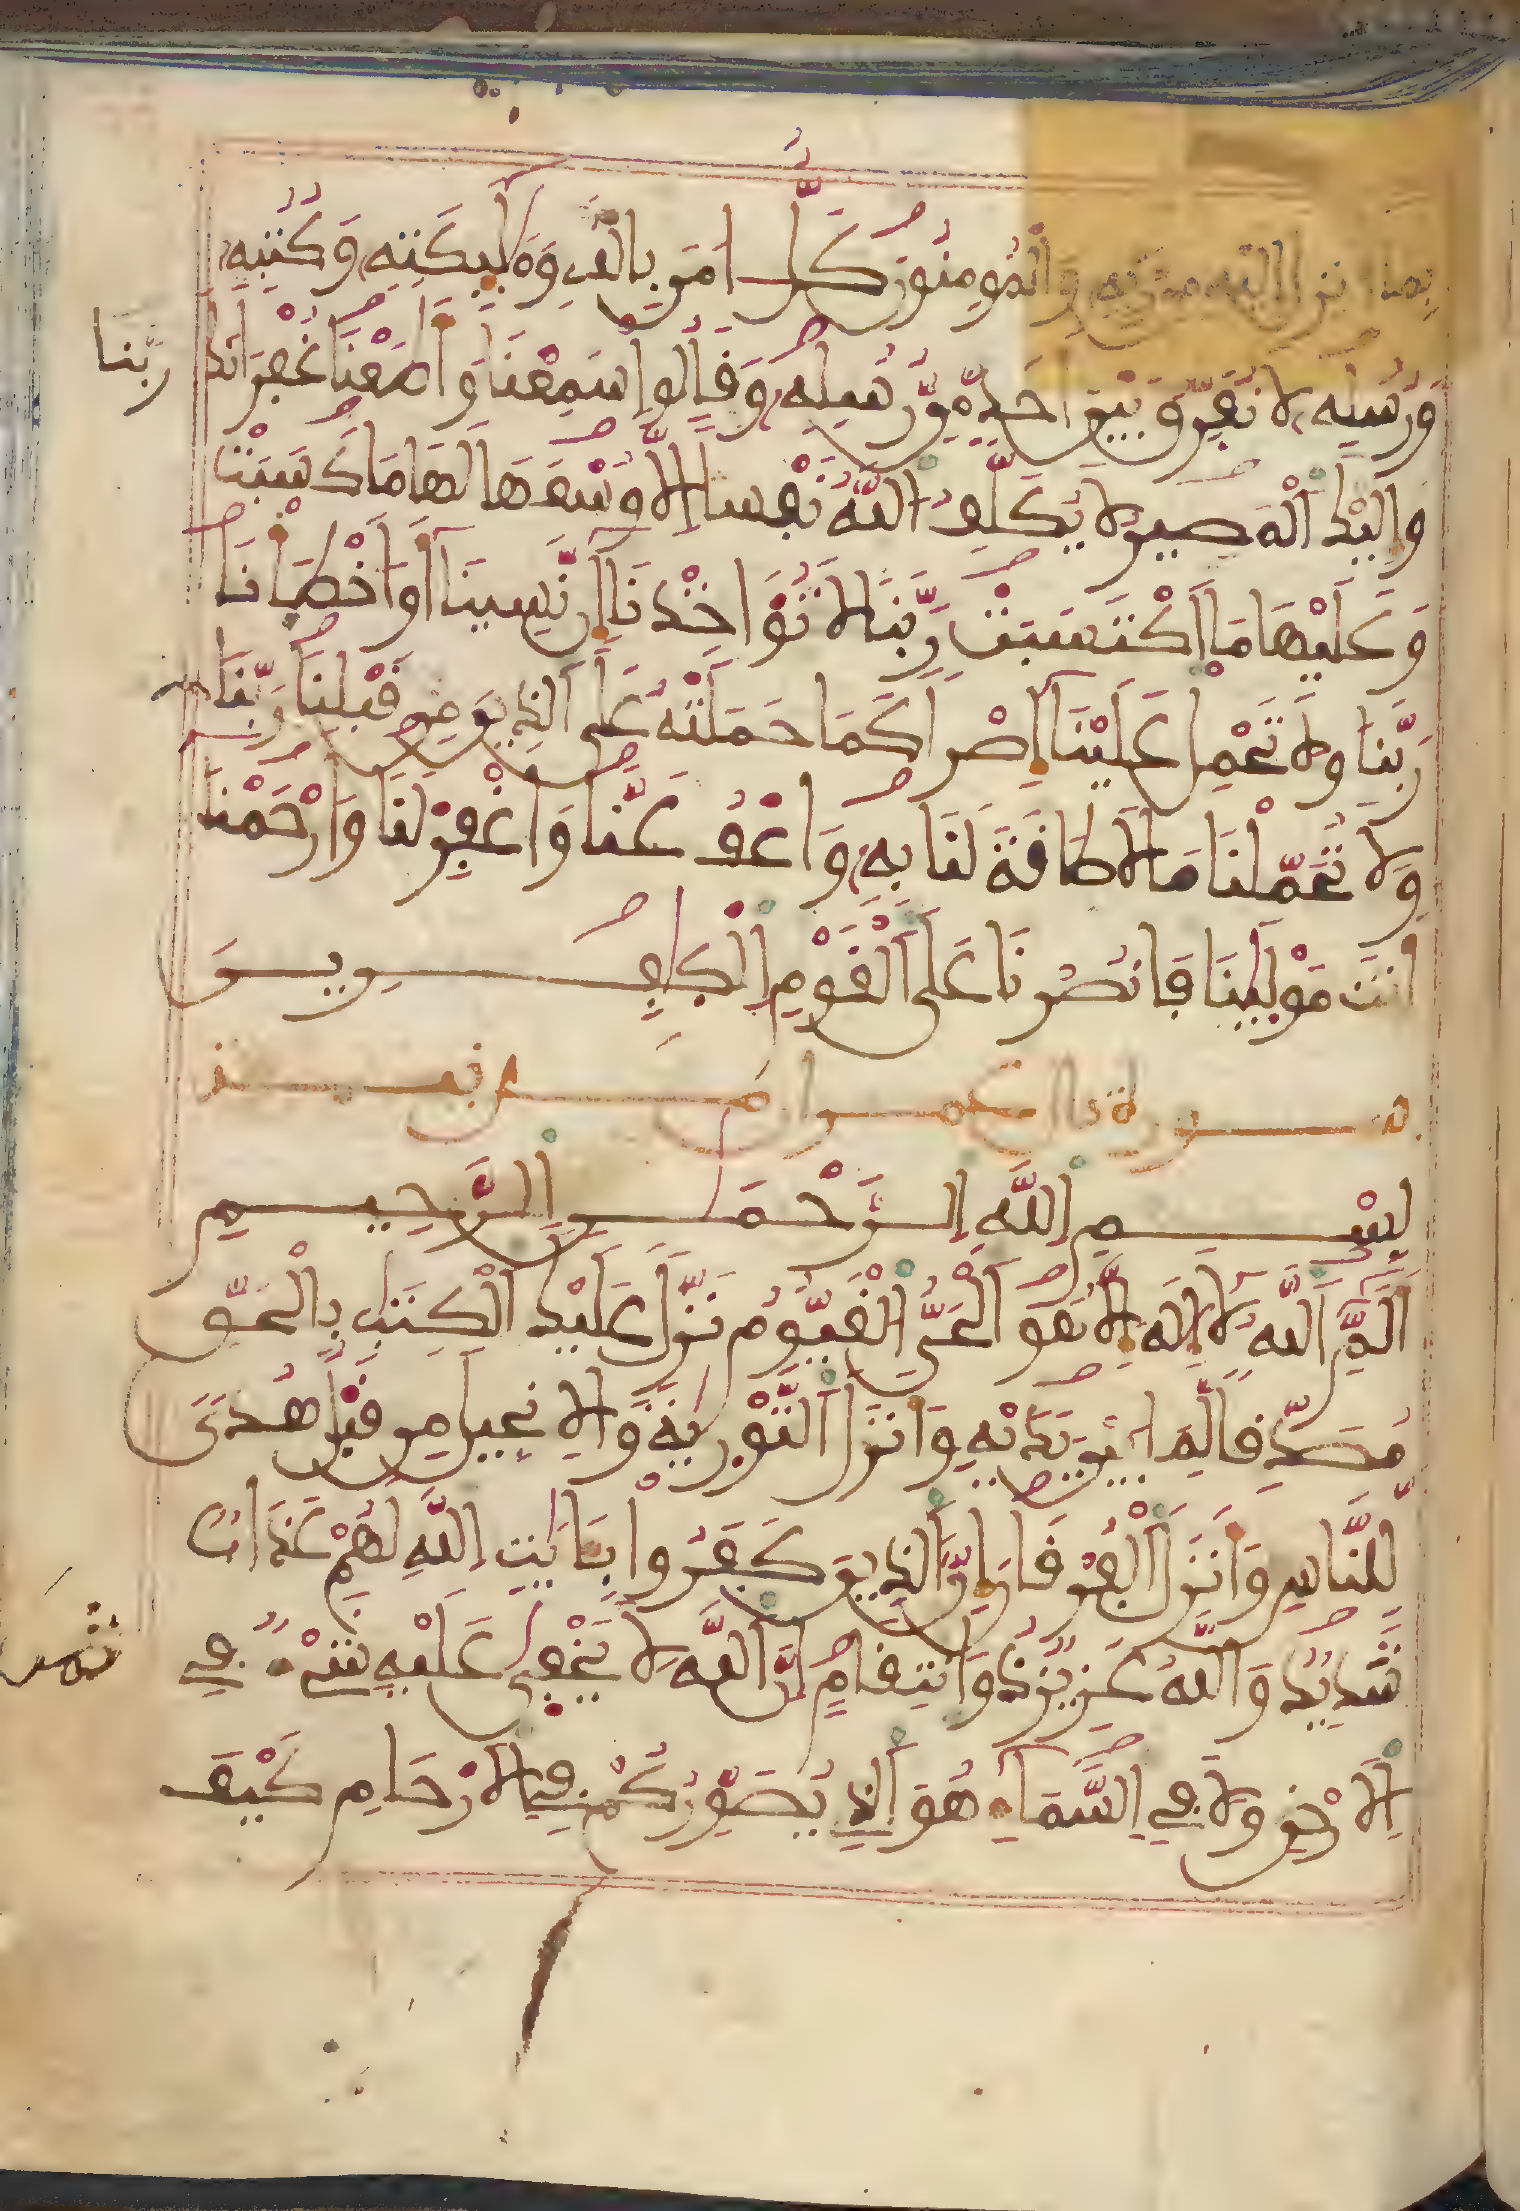 بما انزل اليه من ربه والمومنون كل امن بالله وملئكته وكتبه
ورسله لا نفرق بين احد من رسله وقالوا سمعنا واطعنا غفرانك ربنا
واليك المصير لا يكلف الله نفسا الا وسعها لها ما كسبت
وعليها ما اكتسبت ربنا لا تواخذنا ان نسينا او اخطانا
ربنا ولا تحمل علينا اصرا كما حملته على الذين من قبلنا ربنا
ولا تحملنا ما لا طاقة لنا به واعف عنا واغفر لنا وارحمنا
انت مولينا فانصرنا على القوم الكفرين
سورة ال عمران
بسم الله الرحمن الرحيم
الم الله لا اله الا هو الحي القيوم نزل عليك الكتب بالحق
مصدقا لما بين يديه وانزل التورية والانجيل من قبل هدى
للناس وانزل الفرقان ان الذين كفروا بايت الله لهم عذاب
شديد والله عزيز ذو انتقام ان الله لا يخفى عليه شيء في
الارض ولا في السماء هو الذي يصوركم في الارحام كيف